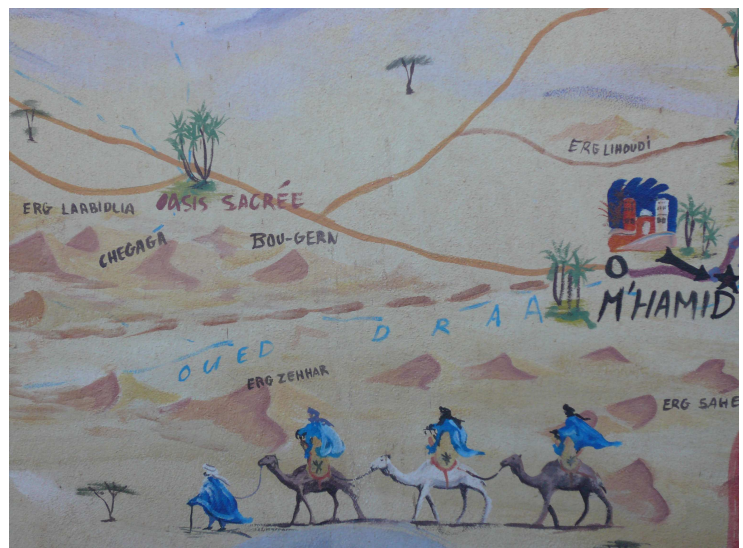 ERG LIHOUDI
ERG LARBIDLIA
OASIS SACRÉE
CHEGAGA
BOU-GERN
M'HAMID
OUED DRAA
ERG ZEHHAR
ERG SAHE